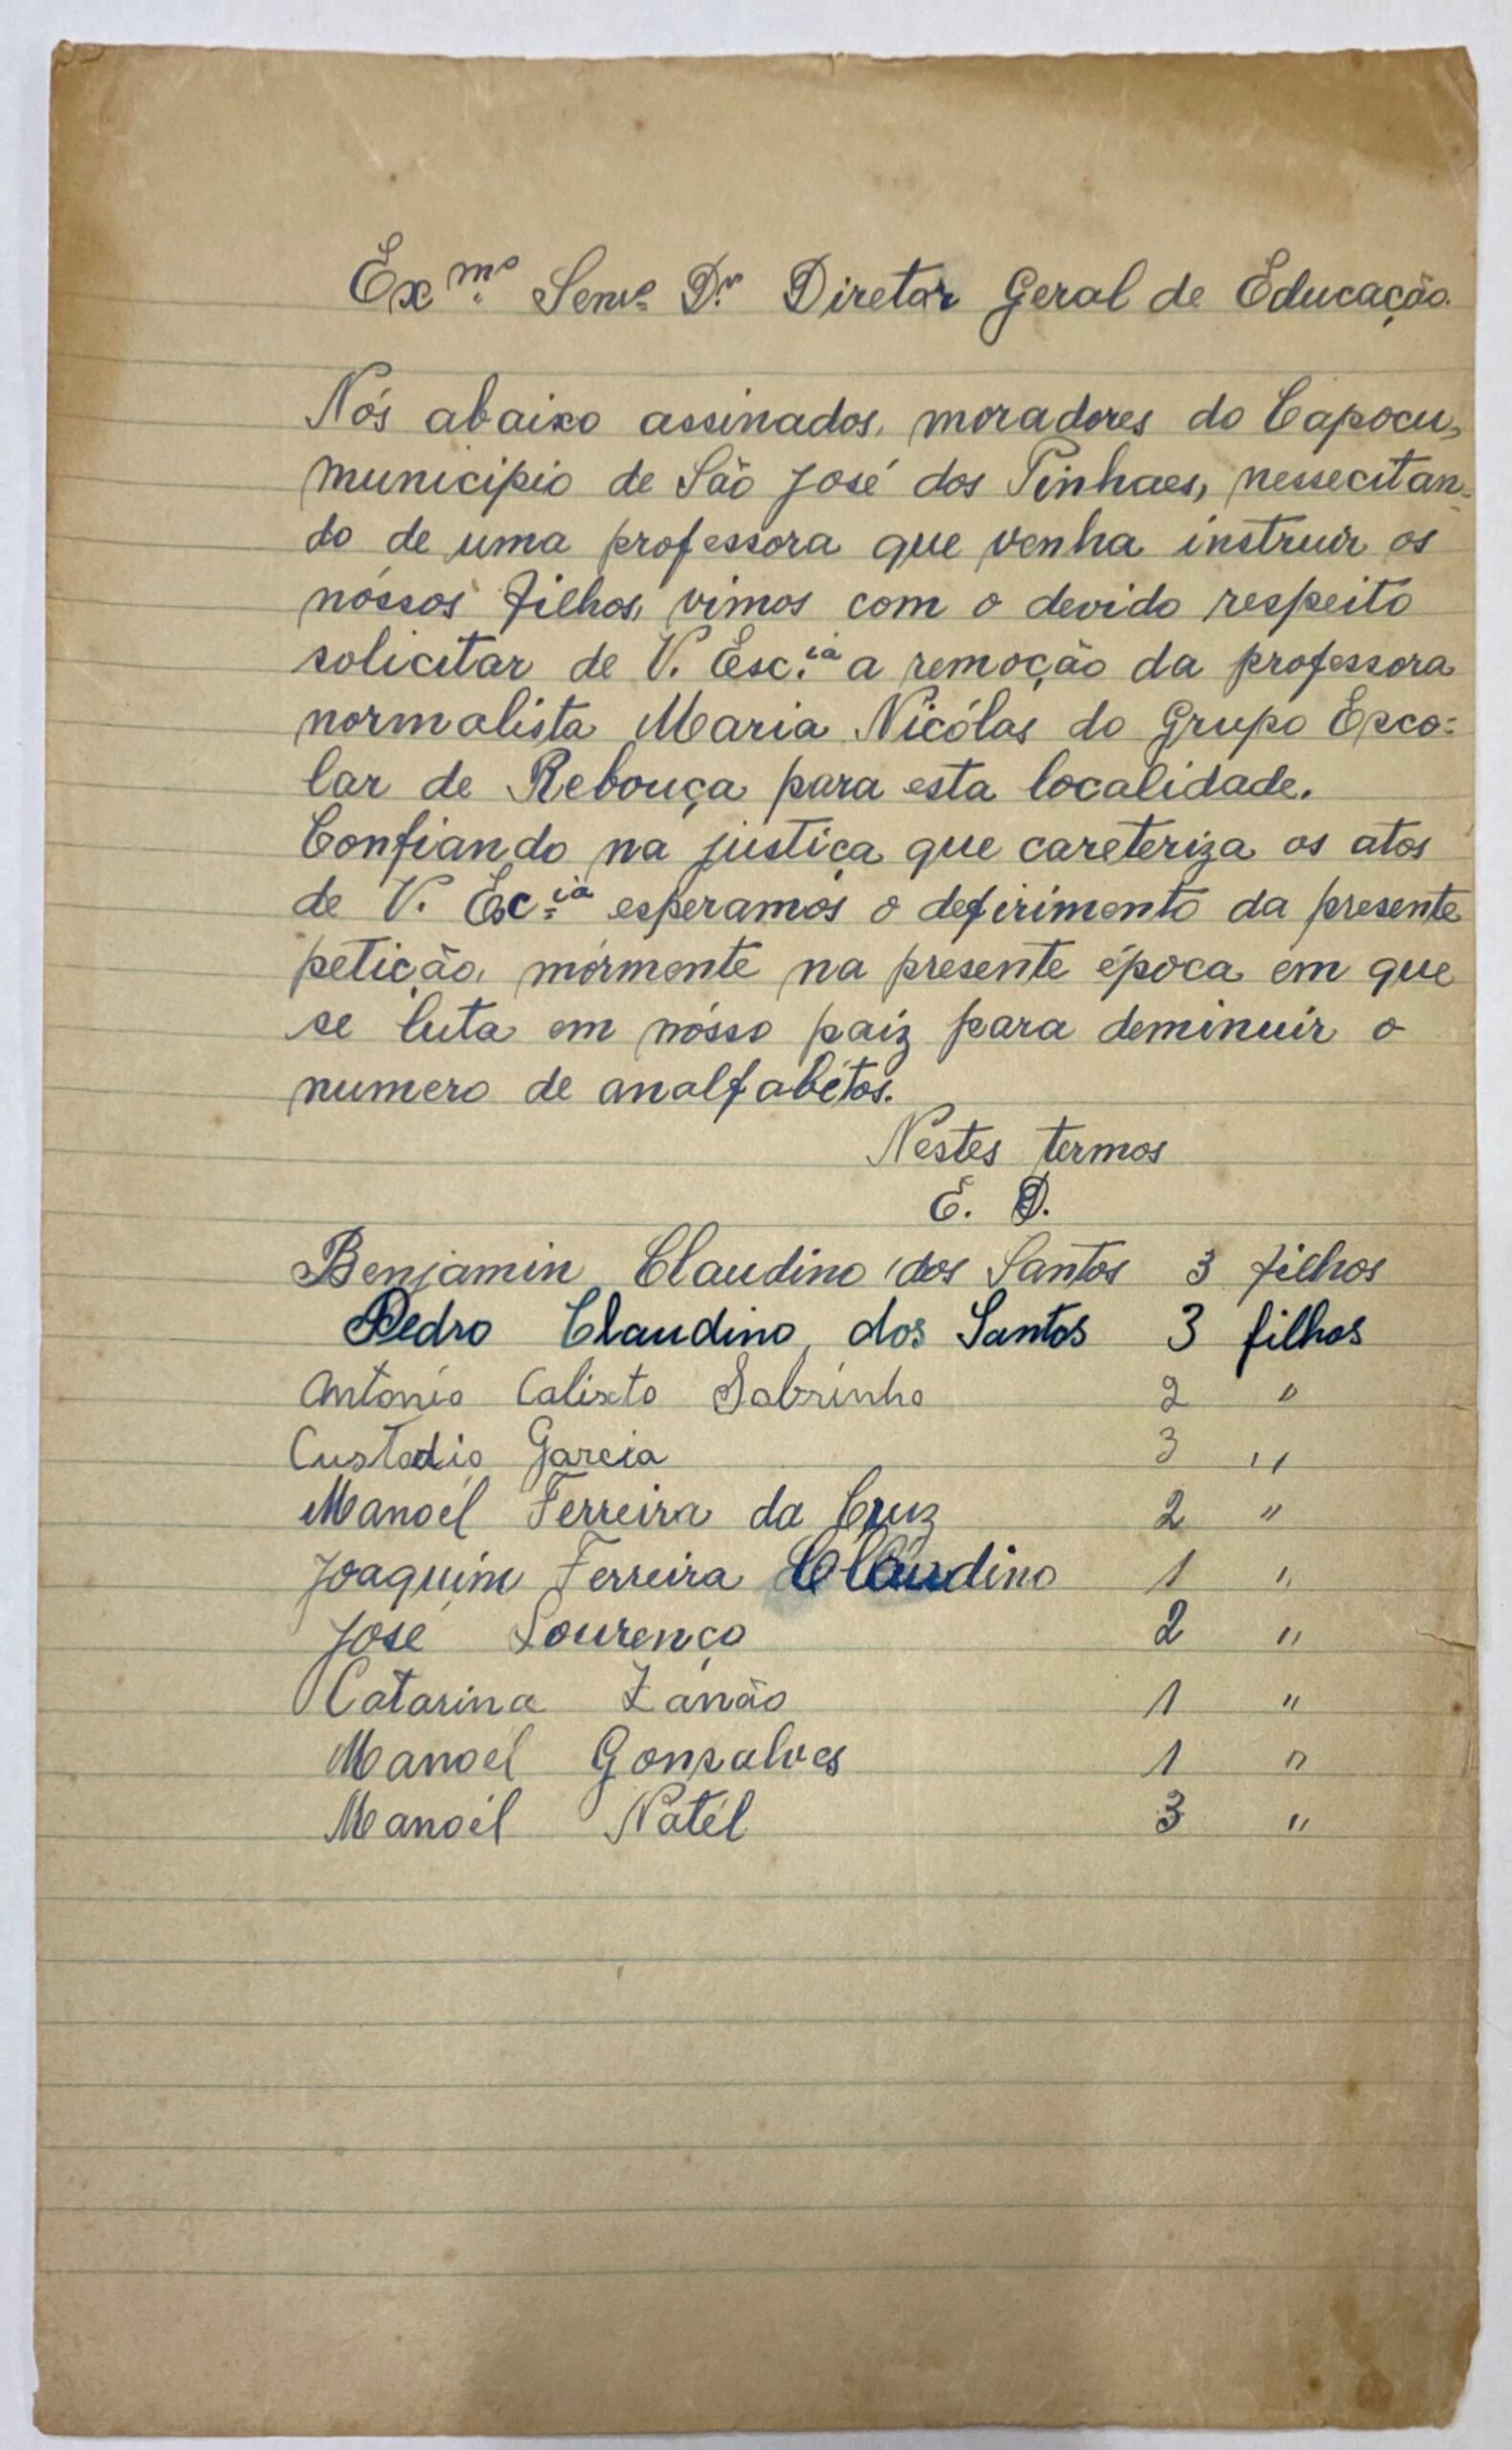 Exmº Senrº Dr Diretor Geral de Educação.
Nós abaixo assinados, moradores do Capocu,
municipio de São José dos Pinhaes, nessecitan-
do de uma professora que venha instruir os
nóssos filhos, vimos com o devido respeito
solicitar de V. Esc.ia a remoção da professora
normalista Maria Nicólas do Grupo Esco-
lar de Rebouça para esta localidade.
Confiando na justiça que careteriza os atos
de V. Esc.ia esperamos o defirimento da presente
petição, mórmente na presente época em que
se luta em nósso paiz para deminuir o
numero de analfabétos.
Nestes termos
E. D.
Benjamin Claudino dos Santos 3 filhos
Pedro Claudino dos Santos 3 filhos
Antonio Calixto Sobrinho 2 "
Custodio Garcia 3 "
Manoél Ferreira da Cruz 2 "
Joaquim Ferreira Claudino 1 "
José Lourenço 2 "
Catarina Zanão 1 "
Manoel Gonsalves 1 "
Manoél Natél 3 "